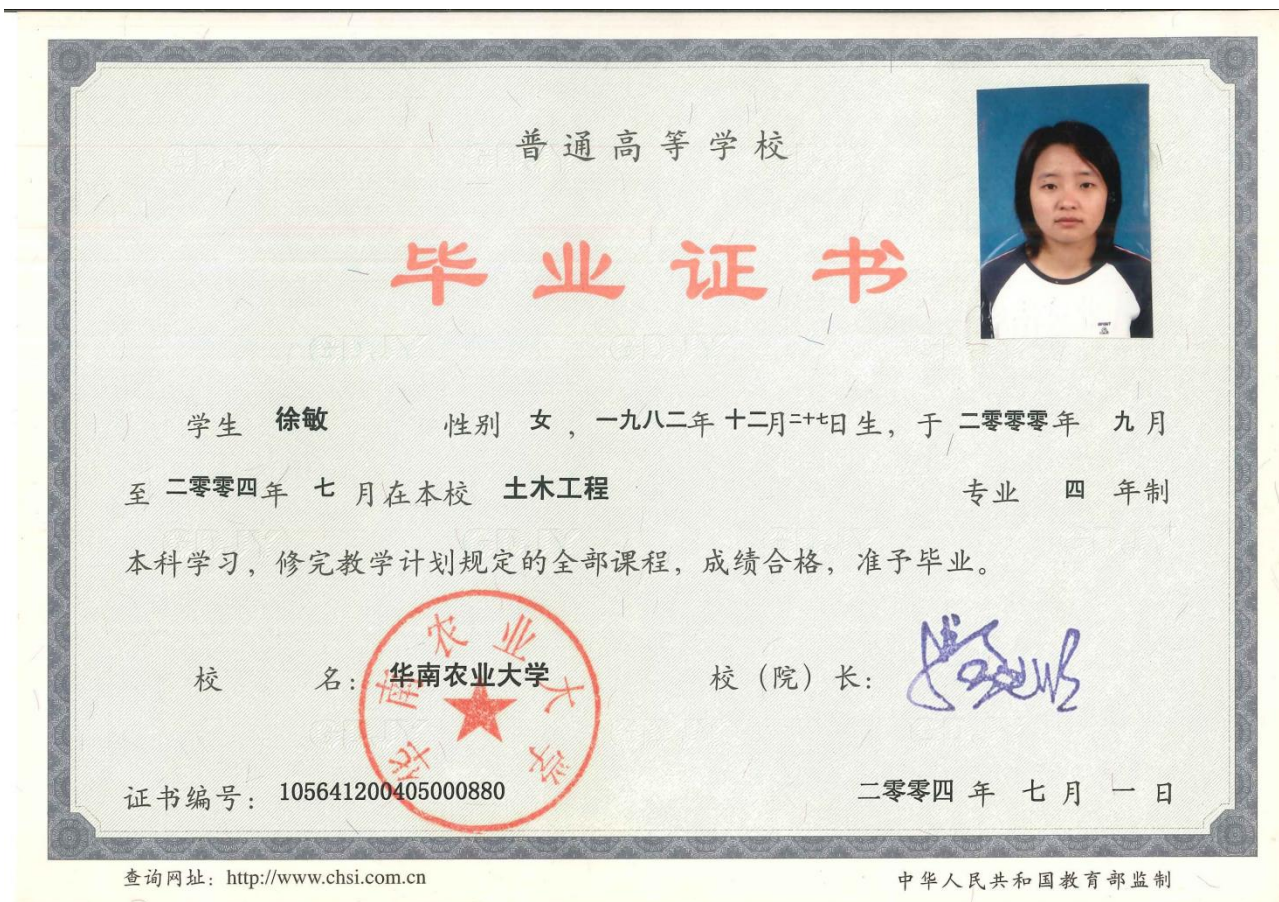 普通高等学校
毕业证书
学生 徐敏 性别 女，一九八二年 十二月二十七日生，于 二零零零年 九月
至 二零零四年 七 月在本校 土木工程 专业 四 年制
本科学习，修完教学计划规定的全部课程，成绩合格，准予毕业。
校 名：华南农业大学 校（院）长：
华南农业大学
证书编号：105641200405000880 二零零四 年 七 月 一 日
查询网址：http://www.chsi.com.cn 中华人民共和国教育部监制